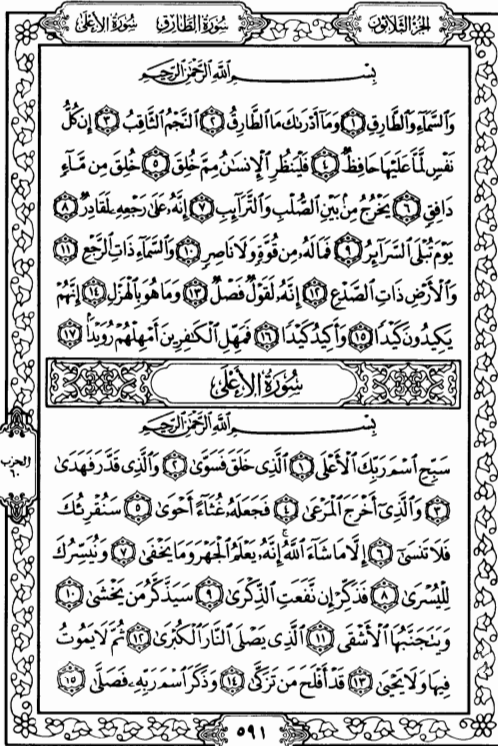 سُورَةُ الأَعْلَىٰ سُورَةُ الطَّارِقِ الجُزءُ الثَّلَاثُونَ
بِسْمِ ٱللَّهِ ٱلرَّحْمَٰنِ ٱلرَّحِيمِ
وَٱلسَّمَآءِ وَٱلطَّارِقِ ١ وَمَآ أَدْرَىٰكَ مَا ٱلطَّارِقُ ٢ ٱلنَّجْمُ ٱلثَّاقِبُ ٣ إِن كُلُّ
نَفْسٍ لَّمَّا عَلَيْهَا حَافِظٌ ٤ فَلْيَنظُرِ ٱلْإِنسَٰنُ مِمَّ خُلِقَ ٥ خُلِقَ مِن مَّآءٍ
دَافِقٍ ٦ يَخْرُجُ مِنۢ بَيْنِ ٱلصُّلْبِ وَٱلتَّرَآئِبِ ٧ إِنَّهُۥ عَلَىٰ رَجْعِهِۦ لَقَادِرٌ ٨
يَوْمَ تُبْلَى ٱلسَّرَآئِرُ ٩ فَمَا لَهُۥ مِن قُوَّةٍ وَلَا نَاصِرٍ ١٠ وَٱلسَّمَآءِ ذَاتِ ٱلرَّجْعِ ١١
وَٱلْأَرْضِ ذَاتِ ٱلصَّدْعِ ١٢ إِنَّهُۥ لَقَوْلٌ فَصْلٌ ١٣ وَمَا هُوَ بِٱلْهَزْلِ ١٤ إِنَّهُمْ
يَكِيدُونَ كَيْدًا ١٥ وَأَكِيدُ كَيْدًا ١٦ فَمَهِّلِ ٱلْكَٰفِرِينَ أَمْهِلْهُمْ رُوَيْدًۢا ١٧
سُورَةُ الأَعْلَىٰ
بِسْمِ ٱللَّهِ ٱلرَّحْمَٰنِ ٱلرَّحِيمِ
سَبِّحِ ٱسْمَ رَبِّكَ ٱلْأَعْلَى ١ ٱلَّذِى خَلَقَ فَسَوَّىٰ ٢ وَٱلَّذِى قَدَّرَ فَهَدَىٰ
٣ وَٱلَّذِىٓ أَخْرَجَ ٱلْمَرْعَىٰ ٤ فَجَعَلَهُۥ غُثَآءً أَحْوَىٰ ٥ سَنُقْرِئُكَ
فَلَا تَنسَىٰٓ ٦ إِلَّا مَا شَآءَ ٱللَّهُ ۚ إِنَّهُۥ يَعْلَمُ ٱلْجَهْرَ وَمَا يَخْفَىٰ ٧ وَنُيَسِّرُكَ
لِلْيُسْرَىٰ ٨ فَذَكِّرْ إِن نَّفَعَتِ ٱلذِّكْرَىٰ ٩ سَيَذَّكَّرُ مَن يَخْشَىٰ ١٠
وَيَتَجَنَّبُهَا ٱلْأَشْقَى ١١ ٱلَّذِى يَصْلَى ٱلنَّارَ ٱلْكُبْرَىٰ ١٢ ثُمَّ لَا يَمُوتُ
فِيهَا وَلَا يَحْيَىٰ ١٣ قَدْ أَفْلَحَ مَن تَزَكَّىٰ ١٤ وَذَكَرَ ٱسْمَ رَبِّهِۦ فَصَلَّىٰ ١٥
الحزب
٦٠
٥٩١